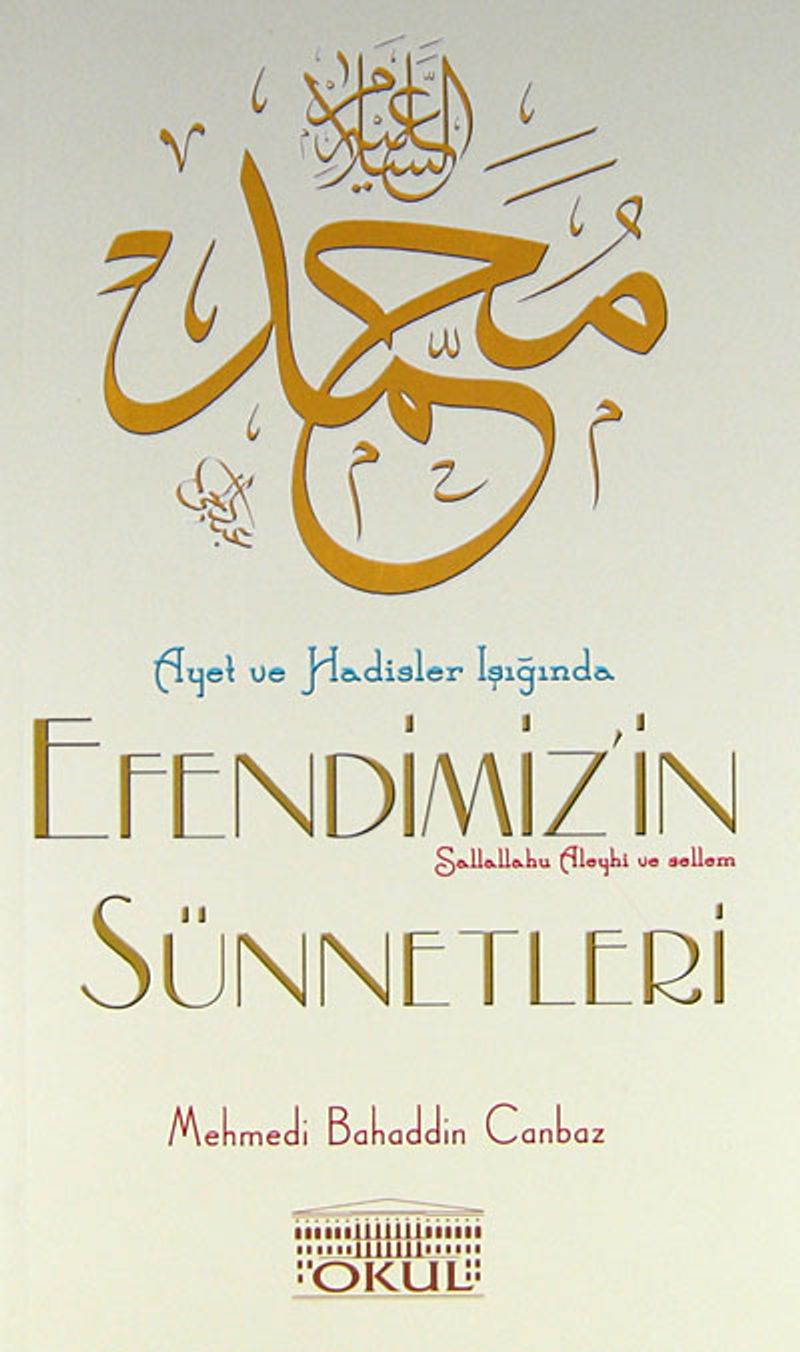 عليه السلام
مُحَمَّد
Ayet ve Hadisler Işığında
EFENDİMİZ'İN
Sallallahu Aleyhi ve sellem
SÜNNETLERİ
Mehmedi Bahaddin Canbaz
OKUL